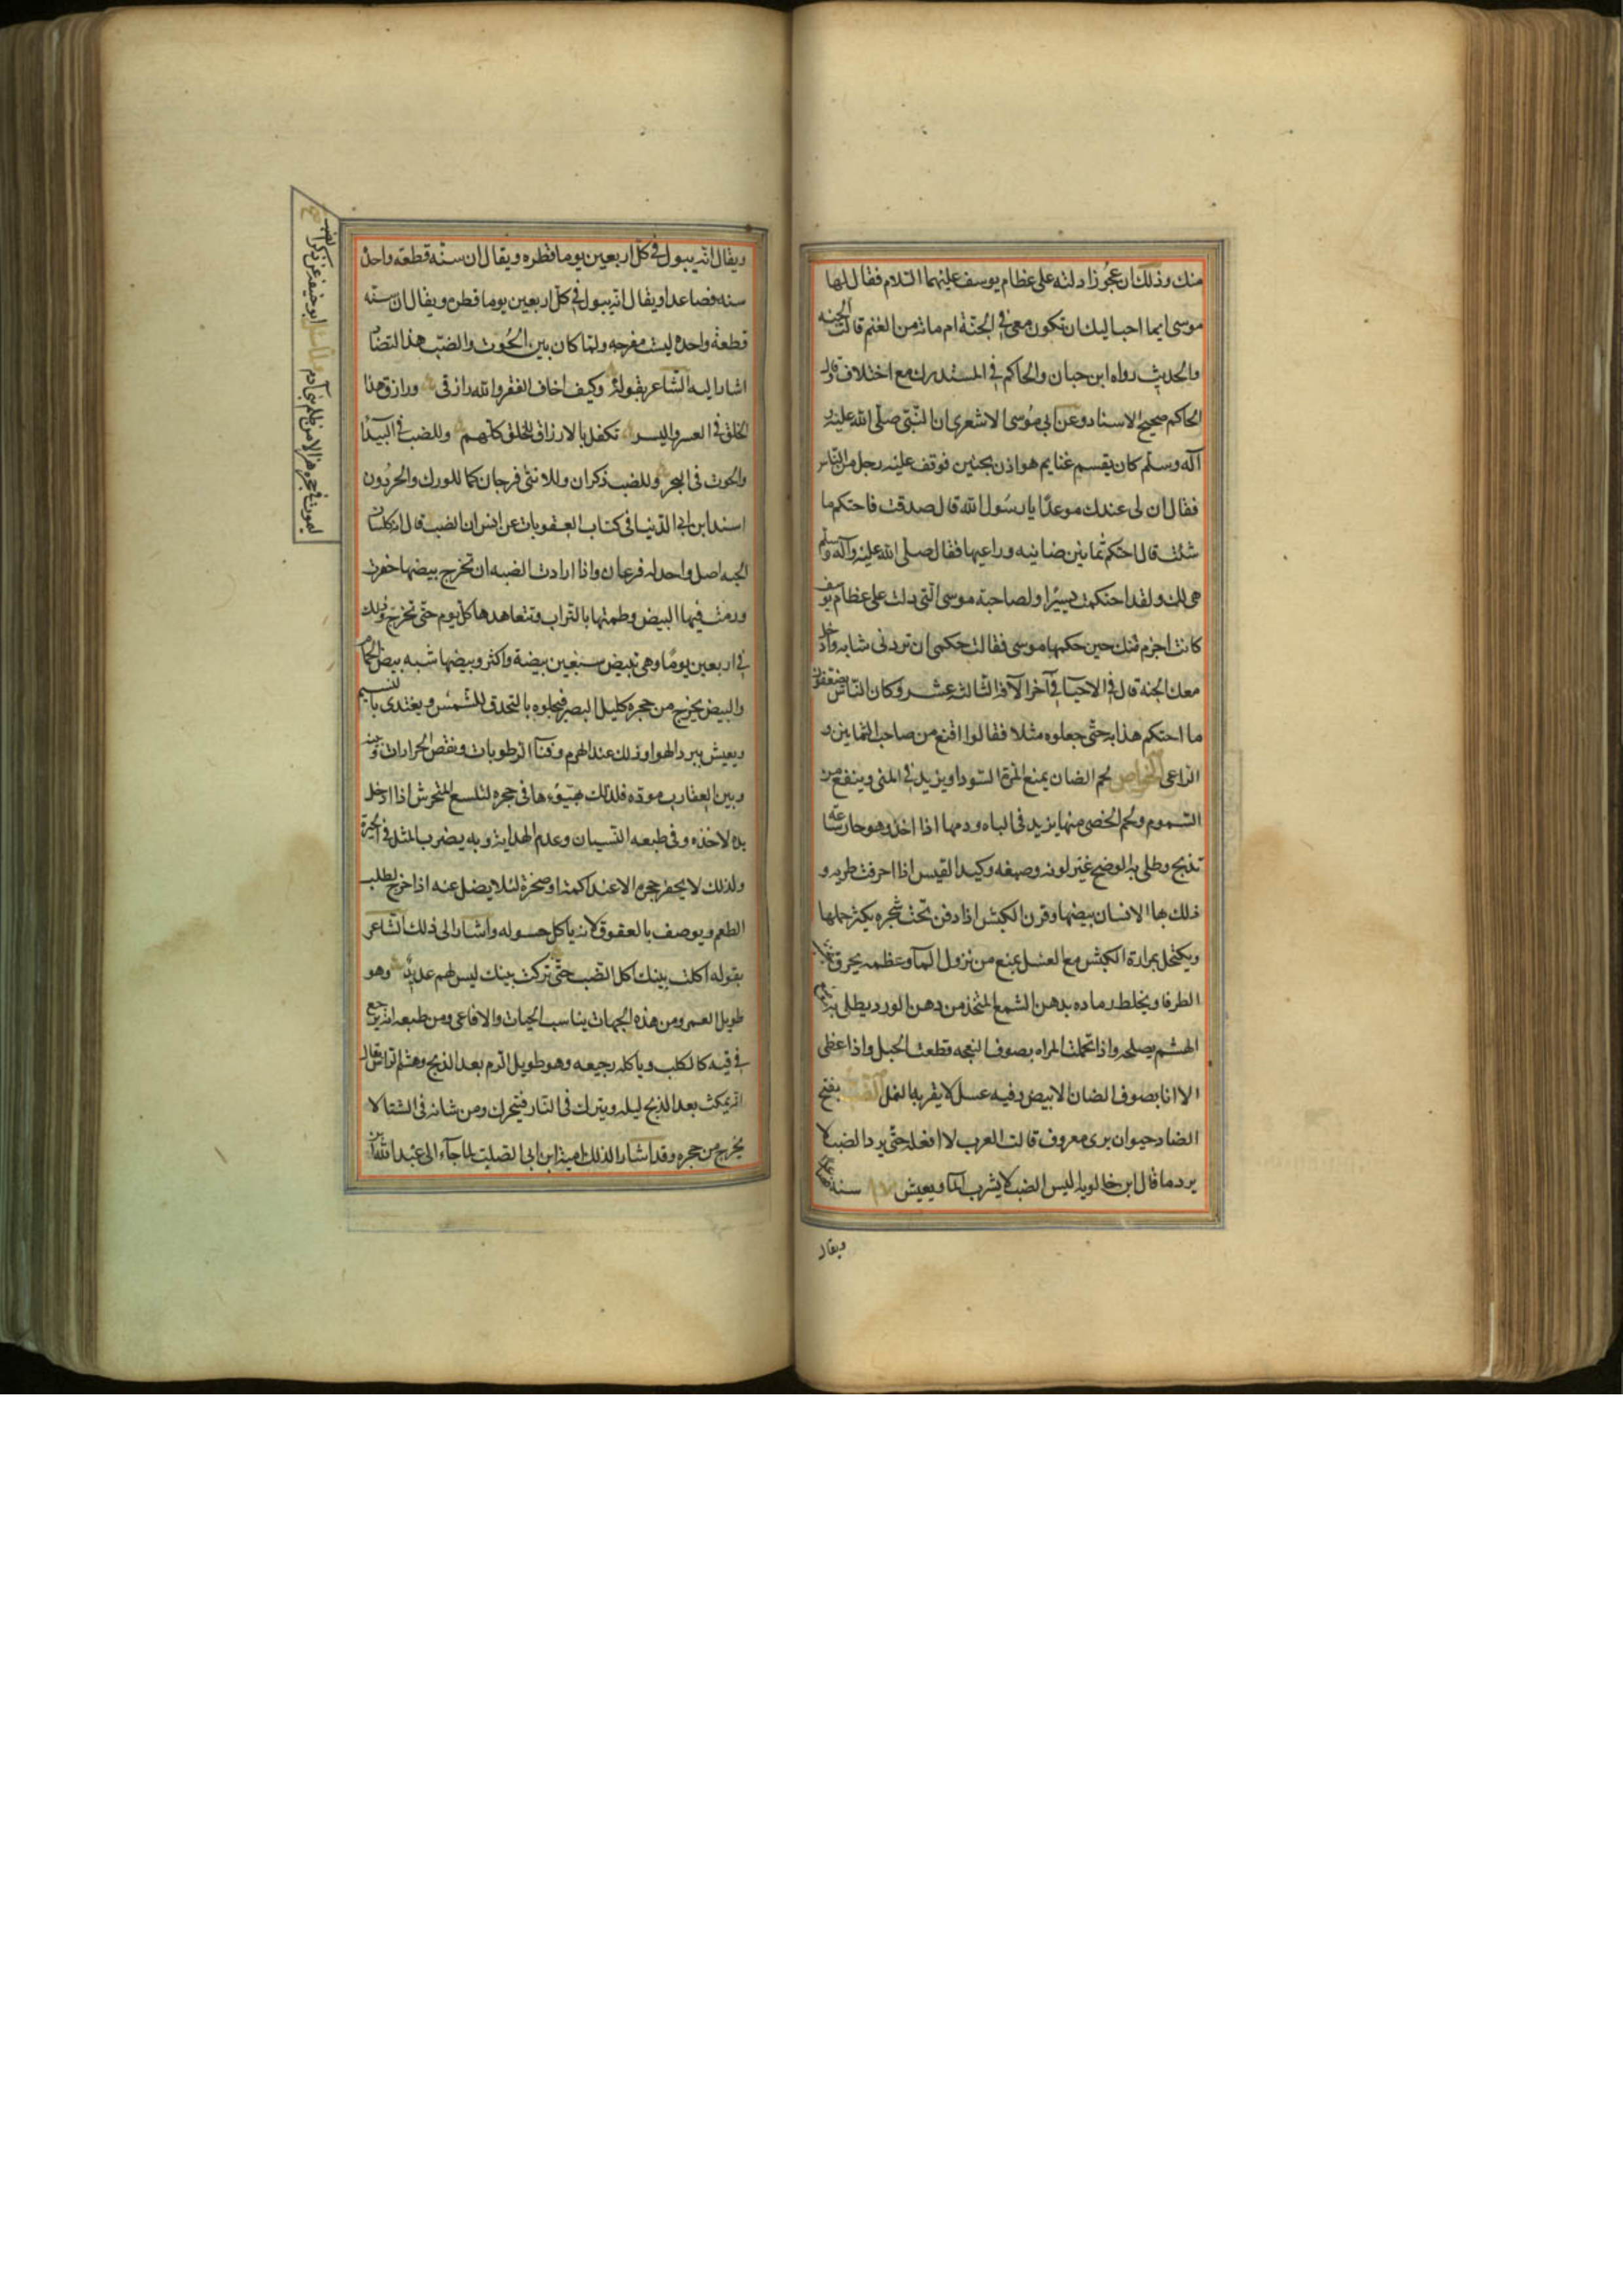 منك وذلك ان عجُوزا دلته على عظام يوسف عليهما السّلام فقال لها
موسى ايما احب اليك ان تكون معى فى الجنّة ام ماته من الغنم قالت الجنه
والحديث رواه ابن حبان والحاكم فى المستدرك مع اختلاف وقال
الحاكم صحيح الاسناد وعن ابى مُوسى الاشعرى ان النّبى صلّى الله عليه و
آله وسلّم كان يقسم غنايم هوازن بحنين فوقف عليه رجل من الناس
فقال ان لى عندك موعدًا يا رسُول الله قال صدقت فاحتكم ما
شئت قال احتكم ثمانين ضانيه وراعيها فقال صلى الله عليه وآله وسلم
هى لك ولقد احتكمت يسيرًا ولصاحبة موسى التى دلت على عظام يوسف
كانت اجزم منك حين حكمها موسى فقالت حكمى ان تردنى شابه وادخل
معك الجنه قال فى الاحيآ فى آخر الآفة الثالثة عشر وكان الناس
ما احتكم هذا به حتّى جعلوه مثلا فقالوا اقنع من صاحب الثمانين و
الراعى الخواص لحم الضان يمنع المرة السّودا ويزيد فى المنى وينفع من
السّموم ولحم الخصى منها يزيد فى الباه ودمها اذا اخذ وهو حار ساعه
تذبح وطلى به الوضح غيّر لونه وكبد اذا احرقت طريه و
ذلك بها الاسنان بيضها وقرن الكبش اذا دفن تحت شجره يكثر حملها
ويكتحل بمرارة الكبش مع العسل يمنع من نزول المآ وعظمه يحرق
الطرفا ويخلط رماده بدهن الشمع المتخذ من دهن الورد يطلى به
الهشم يصلحه واذا تحملت المراه بصوف النعجه قطعت الحبل واذا غطى
الانا بصوف الضان الابيض وفيه عسل لا يقربه النمل الضب بفتح
الضاد حيوان برى معروف قالت العرب لا افعله حتّى يرد الضب لا
يرد ما قال ابن خالويه ليس الضب لا يشرب المآ ويعيش سنه
ويقال
ويقال انه يبول فى كل اربعين يوما قطره ويقال ان سنّه قطعه واحده
سنه فصاعدا ويقال انه يبول فى كلّ اربعين يوما قطره ويقال ان سنّه
قطعة واحده ليست مفرجه ولمّا كان بين الحُوت والضبّ هذا التضاد
اشار اليه الشّاعر بقوله وكيف اخاف الفقر والله رازقى ورازق هذا
الخلق فى العسر واليسر تكفل بالارزاق للخلق كلّهم وللضب فى البيدآ
والحوت فى البحر وللضب ذكران وللانثى فرجان كما للورك والحرذون
اسند ابن ابى الدّنيا فى كتاب العقوبات عن انس ان الضب قال
اصل واحد له فرعان واذا ارادت الضبه ان تخرج بيضها حفرت
ورمت فيها البيض وطمتها بالتراب وتتعاهدها كل يوم حتّى تخرج وذلك
فى اربعين يومًا وهى تبيض سبعين بيضة واكثر وبيضها شبه بيض الحمام
والبيض يخرج من حجره كليل البصر فيجلوه بالتحدق للشمس ويغتدى بالنسيم
ويعيش ببرد الهوا وذلك عند الهرم وفنآ الرّطوبات ونقص الحرارات وبينه
وبين العقارب موده فلذلك يهيّوءها فى حجره لتلسع المتحرش اذا ادخل
يده لاخذه وفى طبعه النسيان وعدم الهداية وبه يضرب المثل فى الحيرة
ولذلك لا يحفر حجره الا عند اكمة او صخرة لئلا يضل عنه اذا خرج لطلب
الطعم ويوصف بالعقوق لانه ياكل حسوله واشار الى ذلك الشّاعر
بقوله اكلت بينك اكل الضب حتّى تركت بينك ليس لهم عديد وهو
طويل العمر ومن هذه الجهات يناسب الحيات والافاعى ومن طبعه انه يرجع
فى قيه كالكلب وياكل رجيعه وهو طويل الدم بعد الذبح وهشم الراس يقال
انه يمكث بعد الذبح ليله ويترك فى النّار فيتحرك ومن شانه فى الشتا لا
يخرج من حجره وقد اشار الذلك امية ابن ابى الصلت لما جآء الى عبد الله بن
ابو حنيفه عن ذكر الضب
ليموت فى حجره هزالا من ظلم بنى آدم